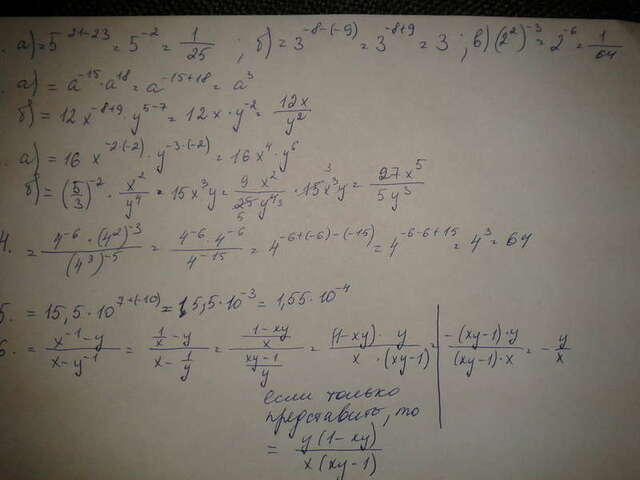 . а) = 5^{21-23} = 5^{-2} = 1/25 ; б) = 3^{-8-(-9)} = 3^{-8+9} = 3 ; в) (2^2)^{-3} = 2^{-6} = 1/64
. а) = a^{-15} · a^{18} = a^{-15+18} = a^3
б) = 12x^{-8+9} · y^{5-7} = 12x · y^{-2} = 12x/y^2
. а) = 16 x^{-2·(-2)} · y^{-3·(-2)} = 16x^4 · y^6
б) = (5/3)^{-2} · x^2/y^4 = 15x^3y = 9 x^2/25 y^4 · 15x^3y = 27x^5/5y^3
4. = 4^{-6} · (4^2)^{-3}/(4^3)^{-5} = 4^{-6} · 4^{-6}/4^{-15} = 4^{-6+(-6)-(-15)} = 4^{-6-6+15} = 4^3 = 64
5. = 15,5 · 10^{7+(-10)} = 15,5 · 10^{-3} = 1,55 · 10^{-4}
6. = x^{-1} - y/x - y^{-1} = (1/x - y)/(x - 1/y) = ((1-xy)/x)/((xy-1)/y) = (1-xy) · y/x · (xy-1) = -(xy-1) · y/(xy-1) · x = - y/x
если только
представить, то
= y(1-xy)/x(xy-1)